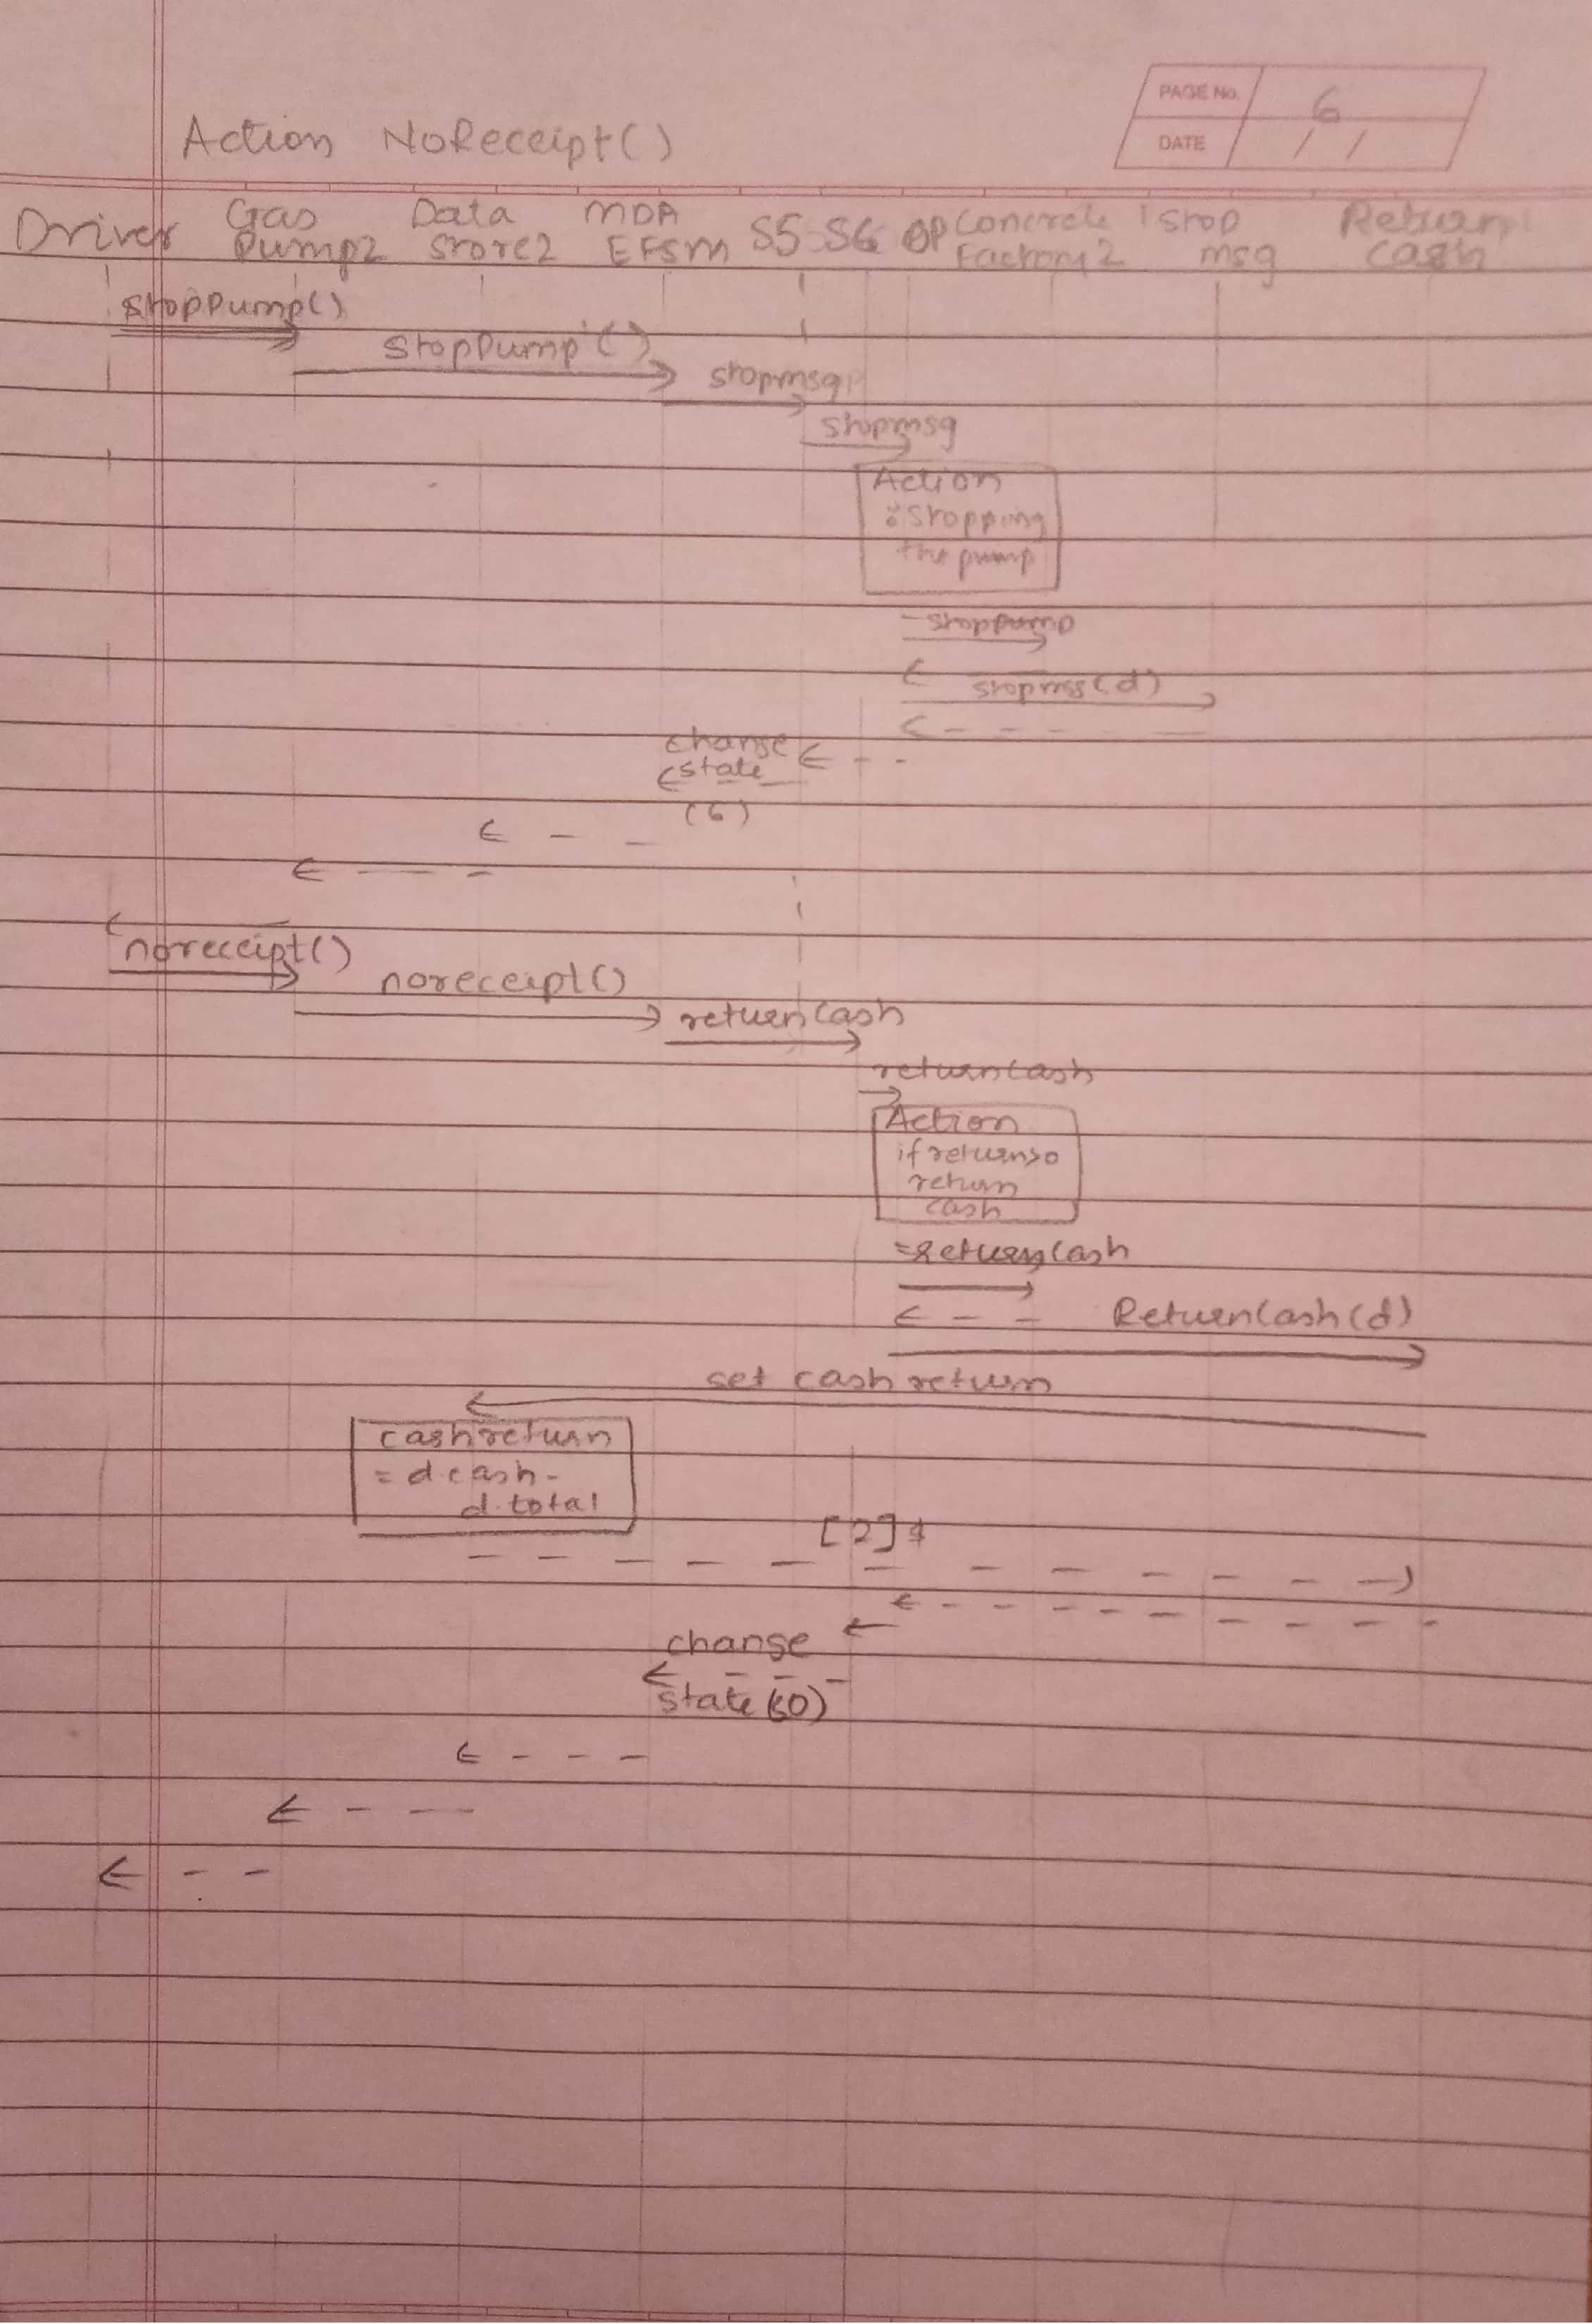 PAGE No. 6
DATE / /
Action NoReceipt()
Driver Gas Pump2 Data Store2 MDA EFSM S5 S6 OP Concrete Factory2 Stop msg Return cash
stopPump()
StopPump()
stopmsg
stopmsg
Action
: Stopping
the pump
stopPump
stopmsg(d)
change
state
(6)
noreceipt()
noreceipt()
returnCash
returnCash
Action
if return>0
return
cash
=returnCash
ReturnCash(d)
set cash return
cashreturn
= d.cash -
d.total
[2]$
change
state (s0)